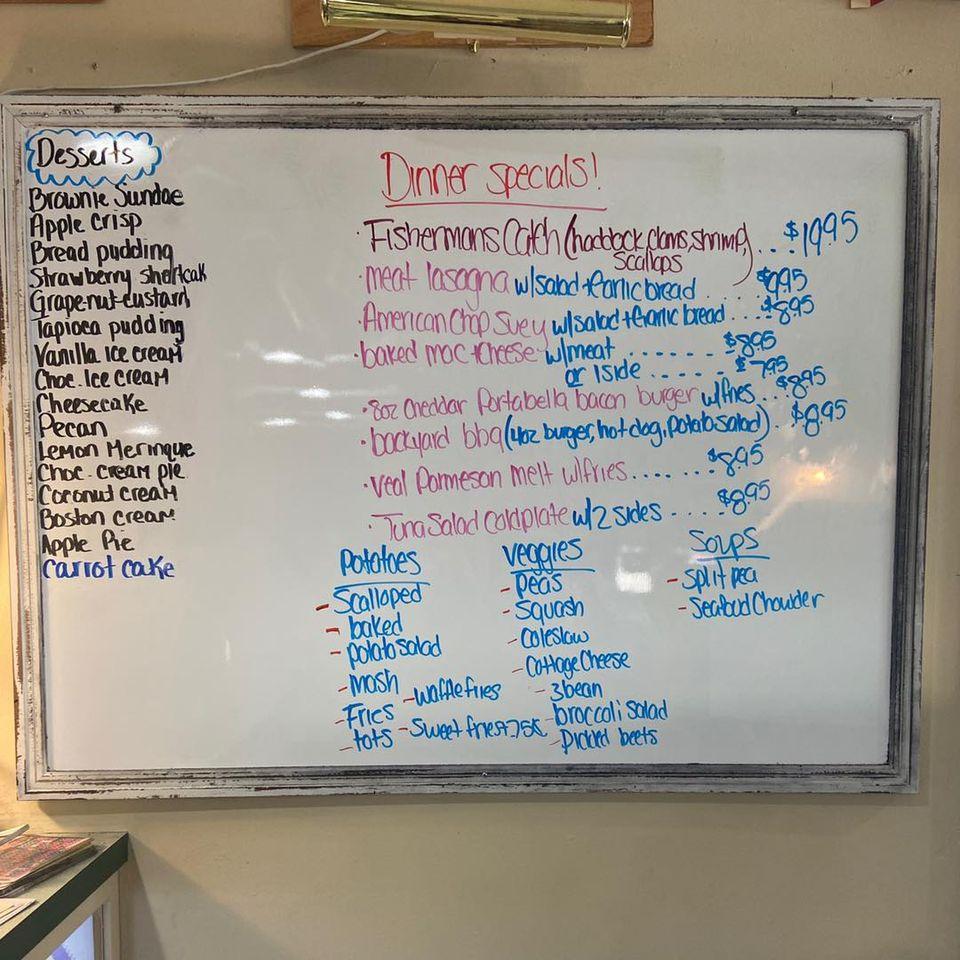 Desserts
Brownie Sundae
Apple crisp
Bread pudding
Strawberry shortcak
Grape-nut-custard
Tapioca pudding
Vanilla Ice cream
Choc. Ice cream
Cheesecake
Pecan
Lemon Meringue
Choc. cream pie
Coconut cream
Boston cream
Apple Pie
Carrot cake
Dinner specials!
· Fishermans Catch (haddock, clams, shrimp, ... $19.95
scallops)
· meat lasagna w/salad + garlic bread .... $9.95
· American Chop Suey w/salad + Garlic bread .... $8.95
· baked mac + cheese w/meat ...... $8.95
or 1 side ...... $7.95
· 8oz cheddar Portabella bacon burger w/fries ... $8.95
· backyard bbq (4oz burger, hot dog, potato salad) . $8.95
· veal parmeson melt w/fries ...... $8.95
· Tuna Salad Coldplate w/2 sides .... $8.95
Potatoes
- Scalloped
- baked
- potato salad
- mash
- waffle fries
- Fries
- Sweet fries +.75¢
- tots
veggies
- peas
- Squash
- Coleslaw
- Cottage Cheese
- 3 bean
- broccoli salad
- Pickled beets
Soups
- Split pea
- Seafood Chowder